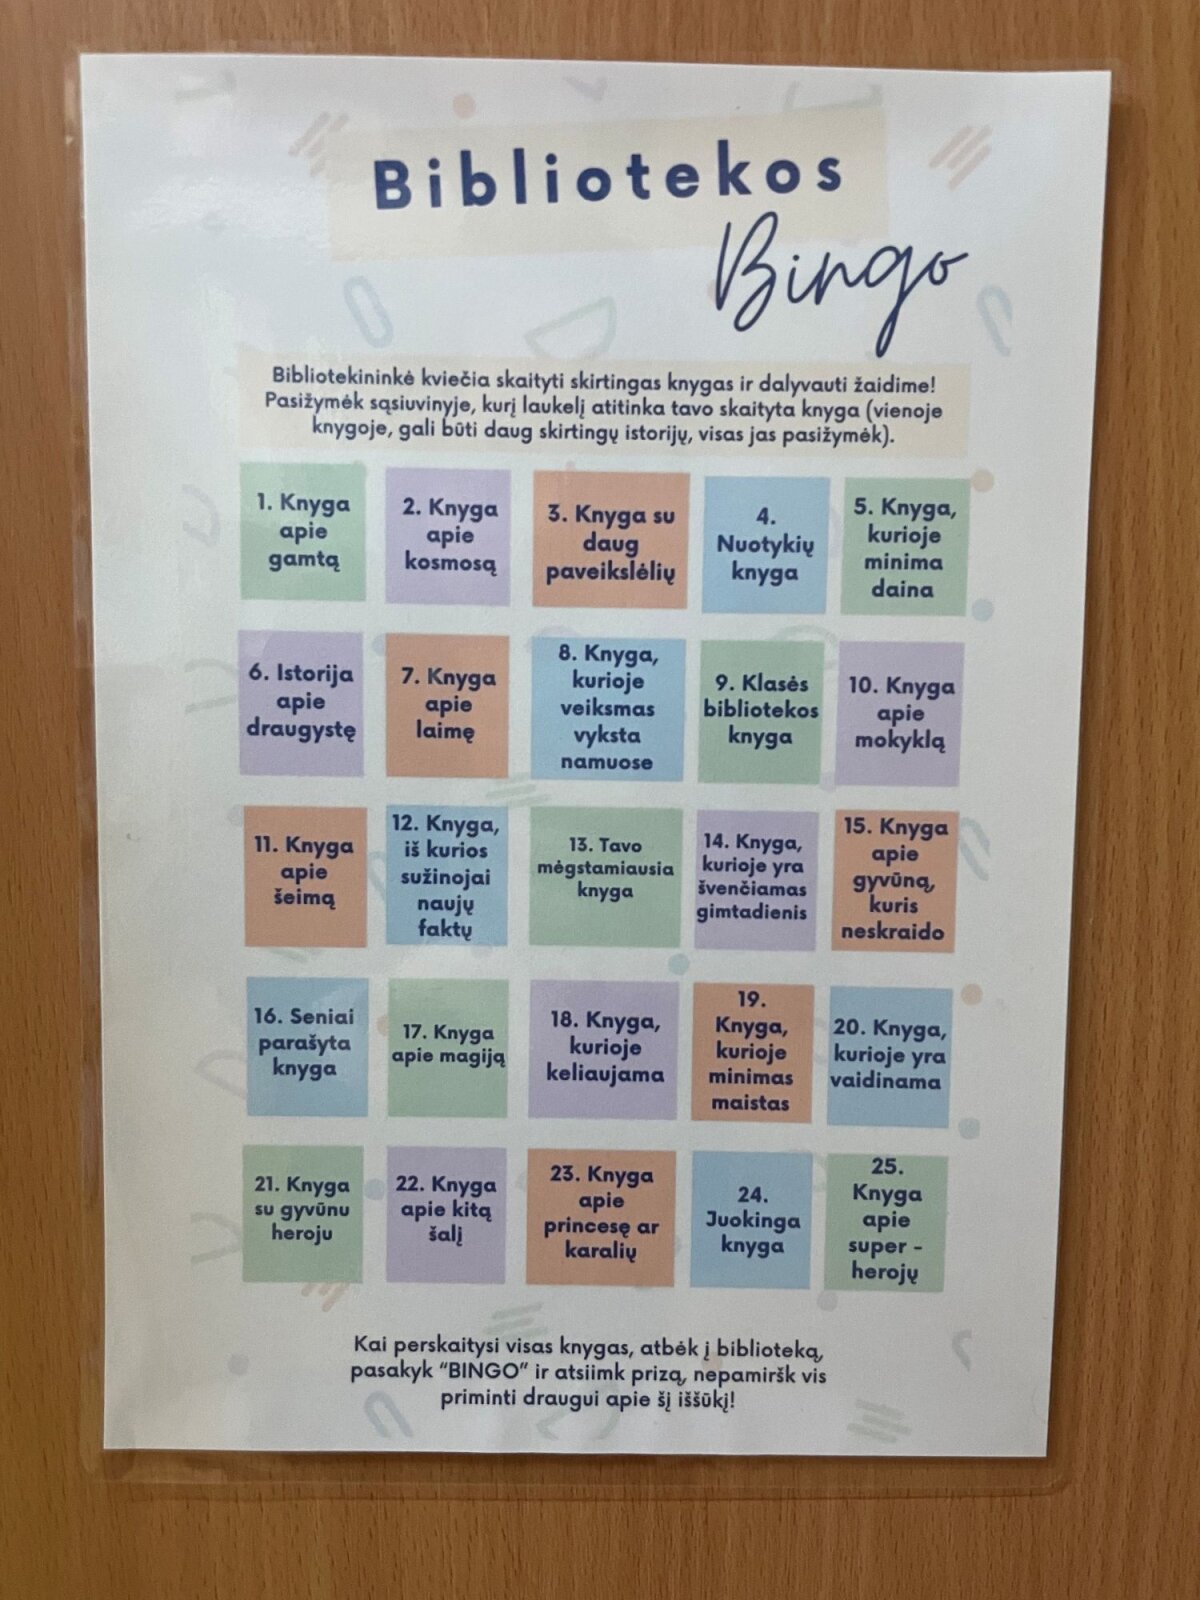 Bibliotekos
Bingo
Bibliotekininkė kviečia skaityti skirtingas knygas ir dalyvauti žaidime!
Pasižymėk sąsiuvinyje, kurį laukelį atitinka tavo skaityta knyga (vienoje
knygoje, gali būti daug skirtingų istorijų, visas jas pasižymėk).
1. Knyga
apie
gamtą
2. Knyga
apie
kosmosą
3. Knyga su
daug
paveikslėlių
4.
Nuotykių
knyga
5. Knyga,
kurioje
minima
daina
6. Istorija
apie
draugystę
7. Knyga
apie
laimę
8. Knyga,
kurioje
veiksmas
vyksta
namuose
9. Klasės
bibliotekos
knyga
10. Knyga
apie
mokyklą
11. Knyga
apie
šeimą
12. Knyga,
iš kurios
sužinojai
naujų
faktų
13. Tavo
mėgstamiausia
knyga
14. Knyga,
kurioje yra
švenčiamas
gimtadienis
15. Knyga
apie
gyvūną,
kuris
neskraido
16. Seniai
parašyta
knyga
17. Knyga
apie magiją
18. Knyga,
kurioje
keliaujama
19.
Knyga,
kurioje
minimas
maistas
20. Knyga,
kurioje yra
vaidinama
21. Knyga
su gyvūnu
heroju
22. Knyga
apie kitą
šalį
23. Knyga
apie
princesę ar
karalių
24.
Juokinga
knyga
25.
Knyga
apie
super -
herojų
Kai perskaitysi visas knygas, atbėk į biblioteką,
pasakyk “BINGO” ir atsiimk prizą, nepamiršk vis
priminti draugui apie šį iššūkį!